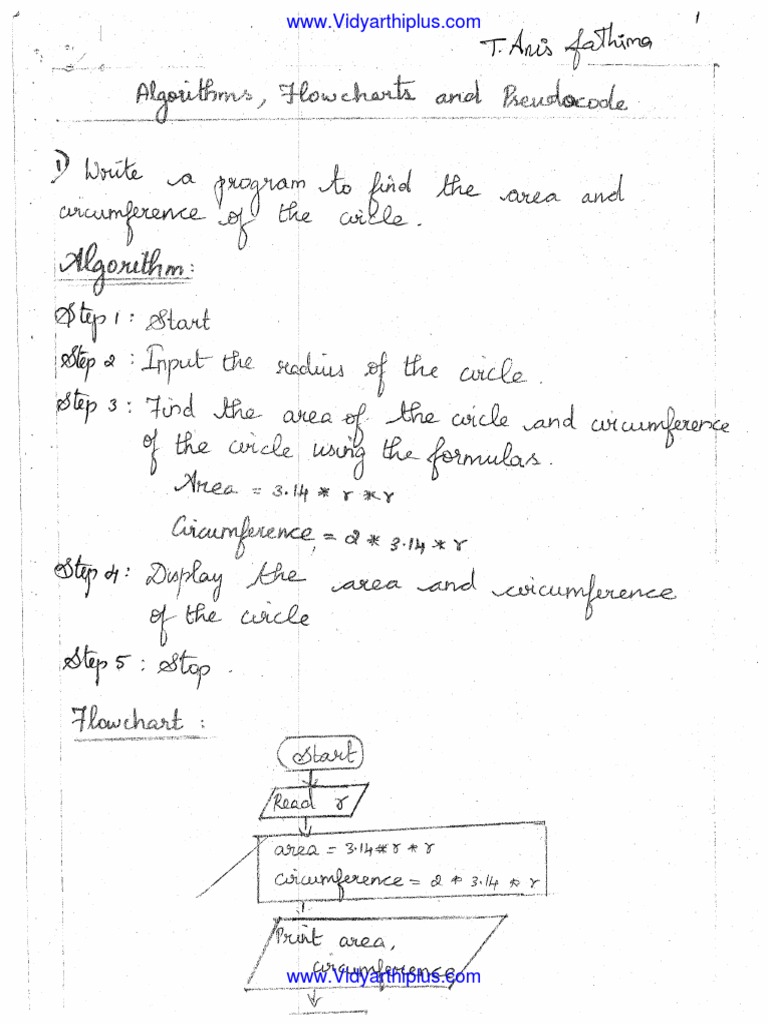 www.Vidyarthiplus.com
1
T. Anis fathima
Algorithms, Flowcharts and Pseudocode
1) Write a program to find the area and
circumference of the circle.
Algorithm:
Step 1: Start
Step 2: Input the radius of the circle.
Step 3: Find the area of the circle and circumference
of the circle using the formulas.
Area = 3.14 * r * r
Circumference = 2 * 3.14 * r
Step 4: Display the area and circumference
of the circle
Step 5: Stop.
Flowchart:
Start
Read r
area = 3.14 * r * r
circumference = 2 * 3.14 * r
Print area,
circumference
www.Vidyarthiplus.com